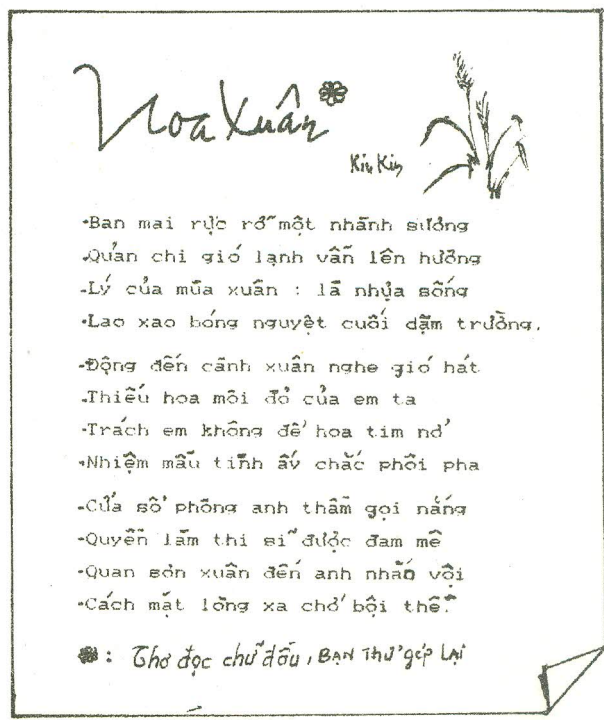 Hoa Xuân
Kim Kim
-Ban mai rực rỡ một nhành sương
-Quản chi gió lạnh vẫn lên hương
-Lý của mùa xuân : là nhựa sống
-Lao xao bóng nguyệt cuối dặm trường.
-Động đến cành xuân nghe gió hát
-Thiếu hoa môi đỏ của em ta
-Trách em không để hoa tim nở
-Nhiệm mầu tình ấy chắc phôi pha
-Cửa sổ phòng anh thầm gọi nắng
-Quyền làm thi sĩ được đam mê
-Quan sơn xuân đến anh nhắn vội
-Cách mặt lòng xa chớ bội thề.
: Thơ đọc chữ đầu, BẠN THỬ gép LẠI